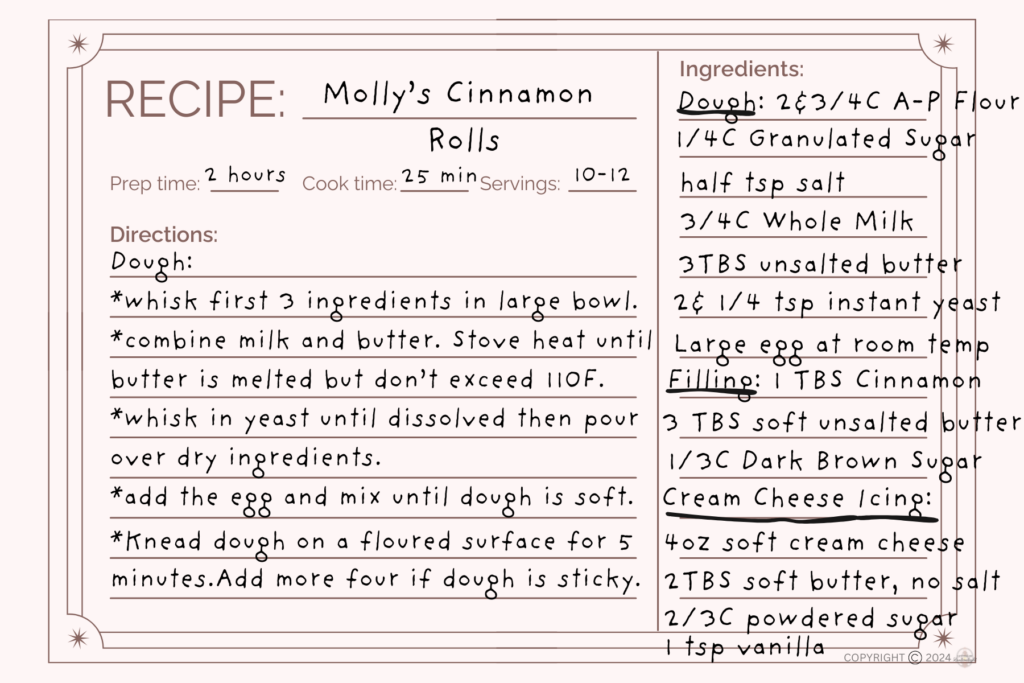 RECIPE: Molly's Cinnamon
Rolls
Prep time: 2 hours Cook time: 25 min Servings: 10-12
Directions:
Dough:
*whisk first 3 ingredients in large bowl.
*combine milk and butter. Stove heat until
butter is melted but don't exceed 110F.
*whisk in yeast until dissolved then pour
over dry ingredients.
*add the egg and mix until dough is soft.
*Knead dough on a floured surface for 5
minutes.Add more four if dough is sticky.
Ingredients:
Dough: 2&3/4C A-P Flour
1/4C Granulated Sugar
half tsp salt
3/4C Whole Milk
3TBS unsalted butter
2& 1/4 tsp instant yeast
Large egg at room temp
Filling: 1 TBS Cinnamon
3 TBS soft unsalted butter
1/3C Dark Brown Sugar
Cream Cheese Icing:
4oz soft cream cheese
2TBS soft butter, no salt
2/3C powdered sugar
1 tsp vanilla
COPYRIGHT © 2024